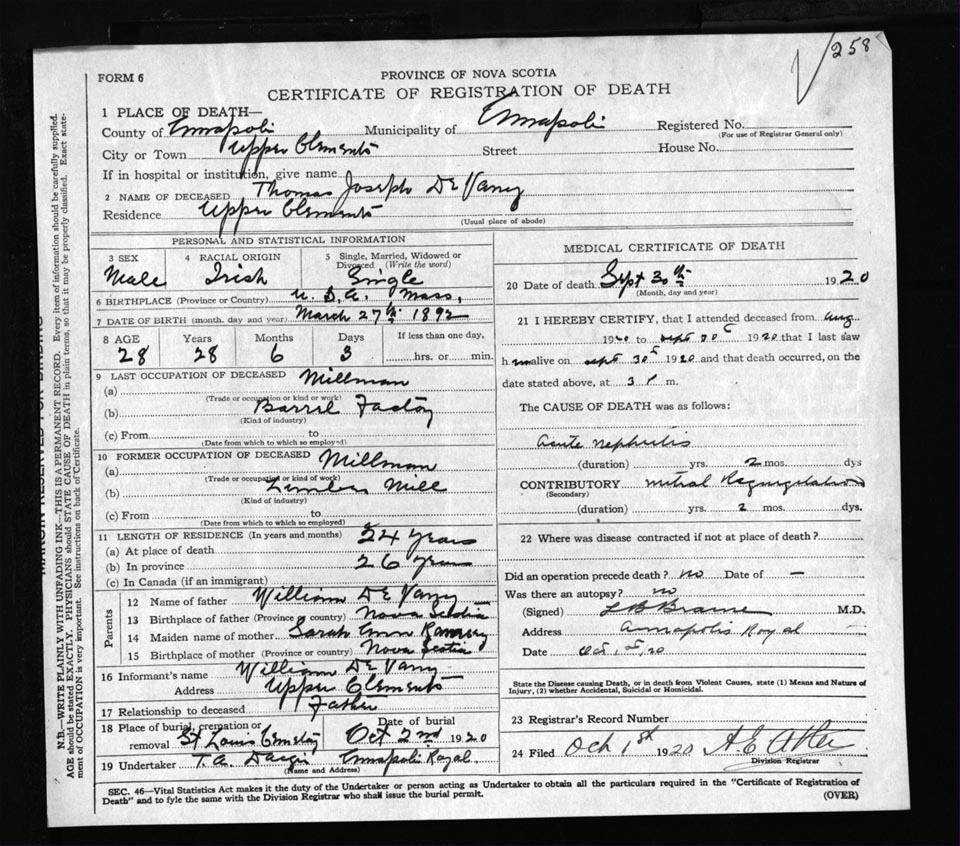 258
FORM 6
PROVINCE OF NOVA SCOTIA
CERTIFICATE OF REGISTRATION OF DEATH
1 PLACE OF DEATH—
County of Annapolis Municipality of Annapolis Registered No.
(For use of Registrar General only)
City or Town Upper Clements Street House No.
If in hospital or institution, give name
2 NAME OF DECEASED Thomas Joseph DeVany
Residence Upper Clements
(Usual place of abode)
PERSONAL AND STATISTICAL INFORMATION
3 SEX 4 RACIAL ORIGIN 5 Single, Married, Widowed or Divorced (Write the word)
Male Irish Single
6 BIRTHPLACE (Province or Country) U. S. A. Mass,
7 DATE OF BIRTH (month, day and year) March 27th 1892
8 AGE Years Months Days If less than one day,
28 28 6 3 hrs. or min.
9 LAST OCCUPATION OF DECEASED
(a) Millman
(Trade or occupation or kind or work)
(b) Barrel Factory
(Kind of industry)
(c) From to
(Date from which to which so employed)
10 FORMER OCCUPATION OF DECEASED
(a) Millman
(Trade or occupation or kind of work)
(b) Lumber Mill
(Kind of industry)
(c) From to
(Date from which to which so employed)
11 LENGTH OF RESIDENCE (In years and months)
(a) At place of death 24 years
(b) In province 26 years
(c) In Canada (if an immigrant)
Parents
12 Name of father William DeVany
13 Birthplace of father (Province or country) Nova Scotia
14 Maiden name of mother Sarah Ann
15 Birthplace of mother (Province or country) Nova Scotia
16 Informant's name William DeVany
Address Upper Clements
17 Relationship to deceased Father
18 Place of burial, cremation or removal St Louis Cemetery Date of burial Oct 2nd 1920
19 Undertaker T. A. Annapolis Royal.
(Name and Address)
MEDICAL CERTIFICATE OF DEATH
20 Date of death Sept 30th 1920
(Month, day and year)
21 I HEREBY CERTIFY, that I attended deceased from Aug
1920 to Sept 30th 1920 that I last saw
him alive on Sept 30th 1920 and that death occurred, on the
date stated above, at 3 P m.
The CAUSE OF DEATH was as follows:
Acute nephritis
(duration) yrs. 2 mos. dys
CONTRIBUTORY Mitral Regurgitation
(Secondary)
(duration) yrs. 2 mos. dys.
22 Where was disease contracted if not at place of death?
Did an operation precede death? no Date of —
Was there an autopsy? no
(Signed) L B Braine M.D.
Address Annapolis Royal
Date Oct 1st/20
State the Disease causing Death, or in death from Violent Causes, state (1) Means and Nature of
Injury, (2) whether Accidental, Suicidal or Homicidal.
23 Registrar's Record Number
24 Filed Oct 1st 1920 A E
Division Registrar
SEC. 46—Vital Statistics Act makes it the duty of the Undertaker or person acting as Undertaker to obtain all the particulars required in the "Certificate of Registration of
Death" and to fyle the same with the Division Registrar who shall issue the burial permit.
(OVER)
MARGIN RESERVED FOR BINDING
N.B.—WRITE PLAINLY WITH UNFADING INK—THIS IS A PERMANENT RECORD. Every item of information should be carefully supplied.
AGE should be stated EXACTLY. PHYSICIANS should STATE CAUSE OF DEATH in plain terms, so that it may be properly classified. Exact state-
ment of OCCUPATION is very important. See instructions on back of Certificate.